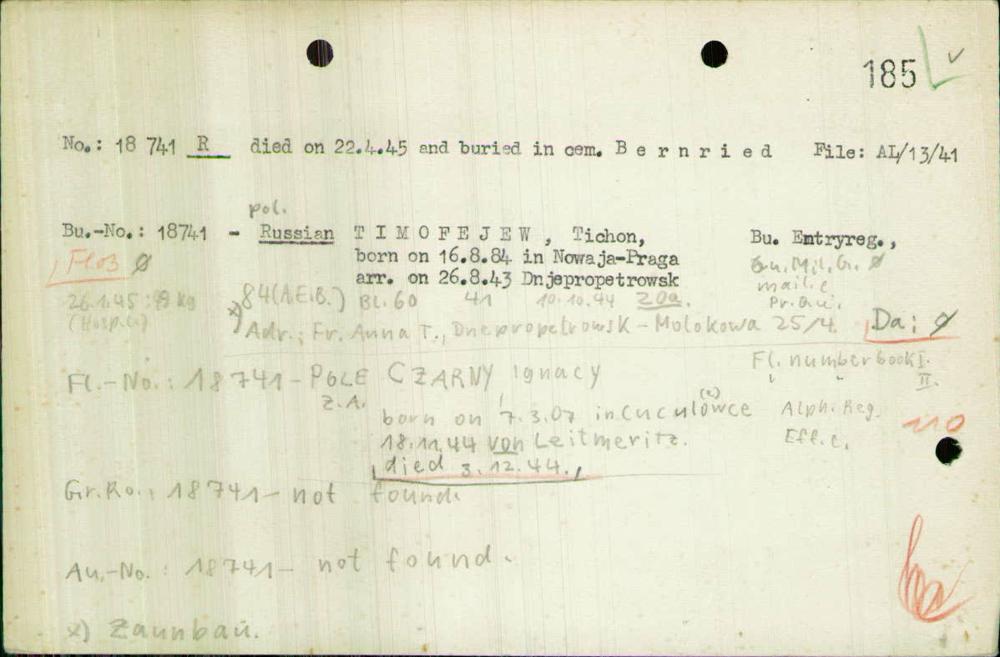 185
No.: 18 741 R died on 22.4.45 and buried in cem. Bernried File: AL/13/41
pol.
Bu.-No.: 18741 - Russian TIMOFEJEW, Tichon, Bu. Entryreg.,
Floß born on 16.8.84 in Nowaja-Praga
arr. on 26.8.43 Dnjepropetrowsk mail.c
26.1.45: kg x) 84(A.E.B.) Bl. 60 41 10.10.44 20a.
(Hosp.c)
Adr.: Fr. Anna T., Dnepropetrowsk - Molokowa 25/4. Da:
Fl.-No.: 18741 - POLE CZARNY Ignacy Fl. number book I.
II.
Z.A.
born on 7.3.07 in Cuculowce Alph. Reg.
(e)
110
18.11.44 von Leitmeritz. Eff.c.
died 3.12.44.,
Gr.Ro.: 18741 - not found.
Au.-No.: 18741 - not found.
x) Zaunbau.